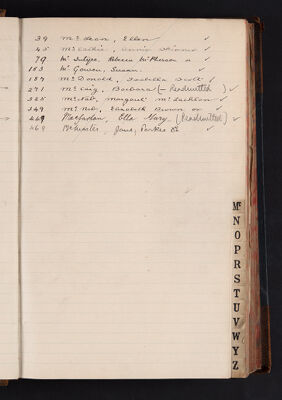 39 McLean, Ellen ✓
45 McCallie, Annie ✓
79 McIntyre, Rebecca McPherson or ✓
153 McGowan, Susan. ✓
187 McDonald, Isabella Scott ✓
271 McCaig, Barbara (- Readmitted ) ✓
325 McNab, Margaret McLachlan ✓
349 McNeil, Elizabeth Brown or ✓
469 Macfarlan, Ella Gary (Readmitted) ✓
469 Jane, Parkes ✓
Mc
N
O
P
R
S
T
U
V
W
Y
Z